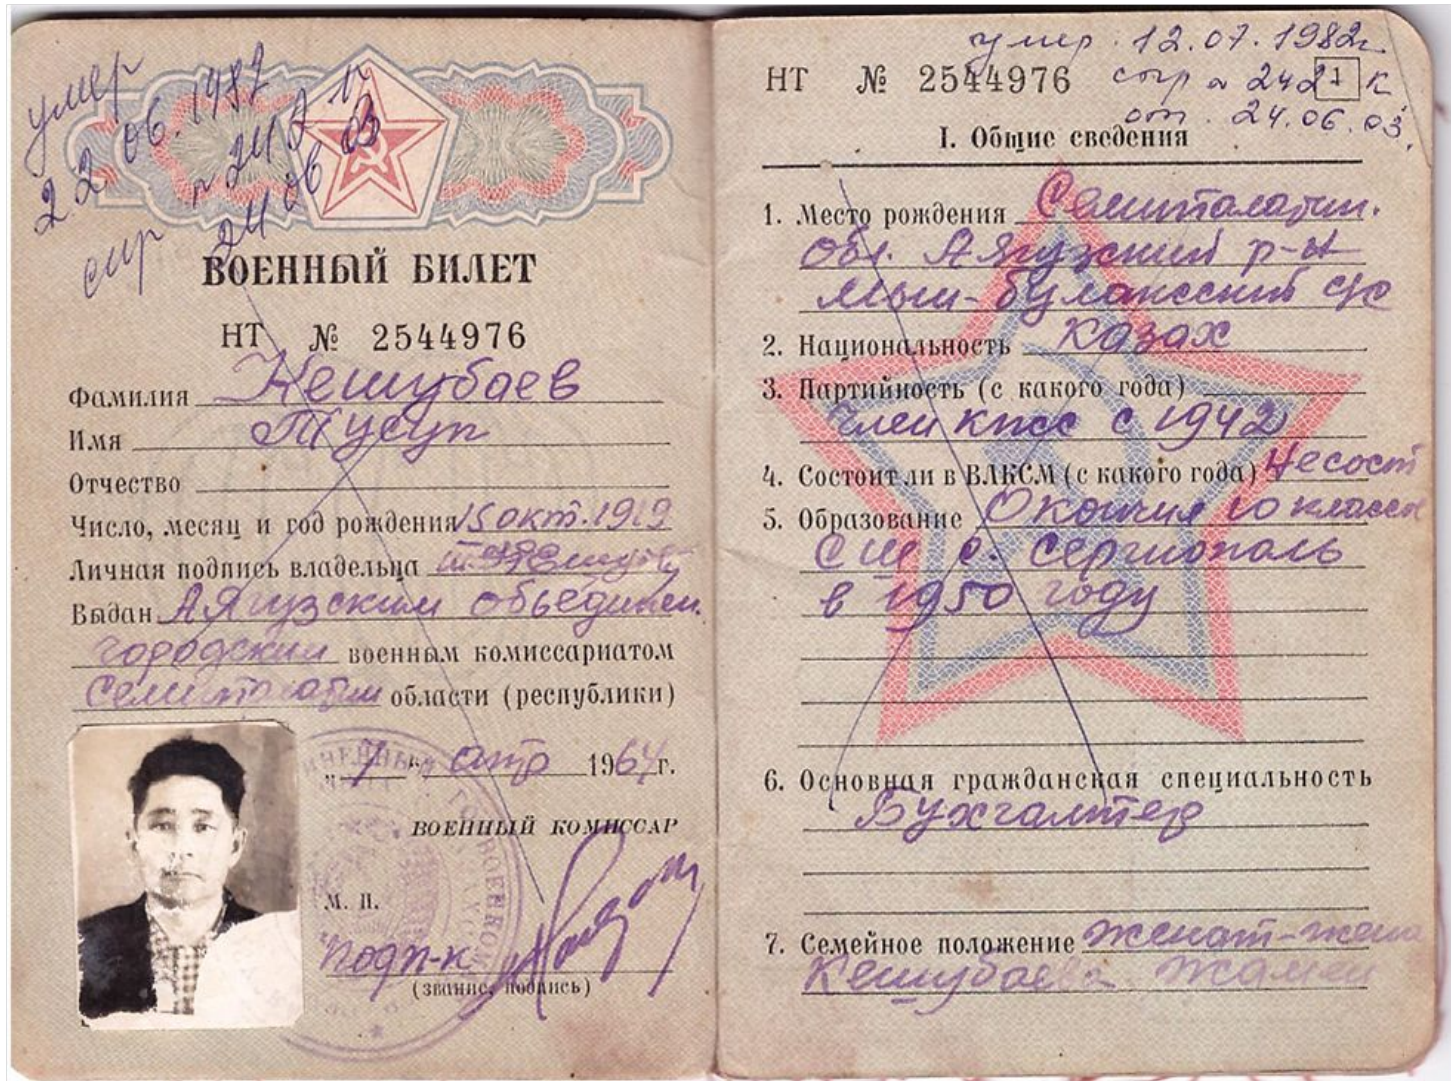 умер
22 06. 1987
спр № 242 17
24 06 03
ВОЕННЫЙ БИЛЕТ
НТ № 2544976
Фамилия Кешубаев
Имя Тусуп
Отчество
Число, месяц и год рождения 15 окт. 1919
Личная подпись владельца
Выдан Аягузским объединен.
городским военным комиссариатом
Семипалатин области (республики)
„7“ апр 1964 г.
ВОЕННЫЙ КОМИССАР
М. П.
подп-к
(звание, подпись)
умер. 12.07.1982г.
НТ № 2544976 спр № 2427 К
от. 24.06.03.
I. Общие сведения
1. Место рождения Семипалатин.
обл. Аягузский р-н
Мын-булакский с/с
2. Национальность казах
3. Партийность (с какого года)
член КПСС с 1942
4. Состоит ли в ВЛКСМ (с какого года) Не сост
5. Образование Окончил 10 классов
СШ с. Сергиополь
в 1950 году
6. Основная гражданская специальность
Бухгалтер
7. Семейное положение женат-жена
Кешубаева